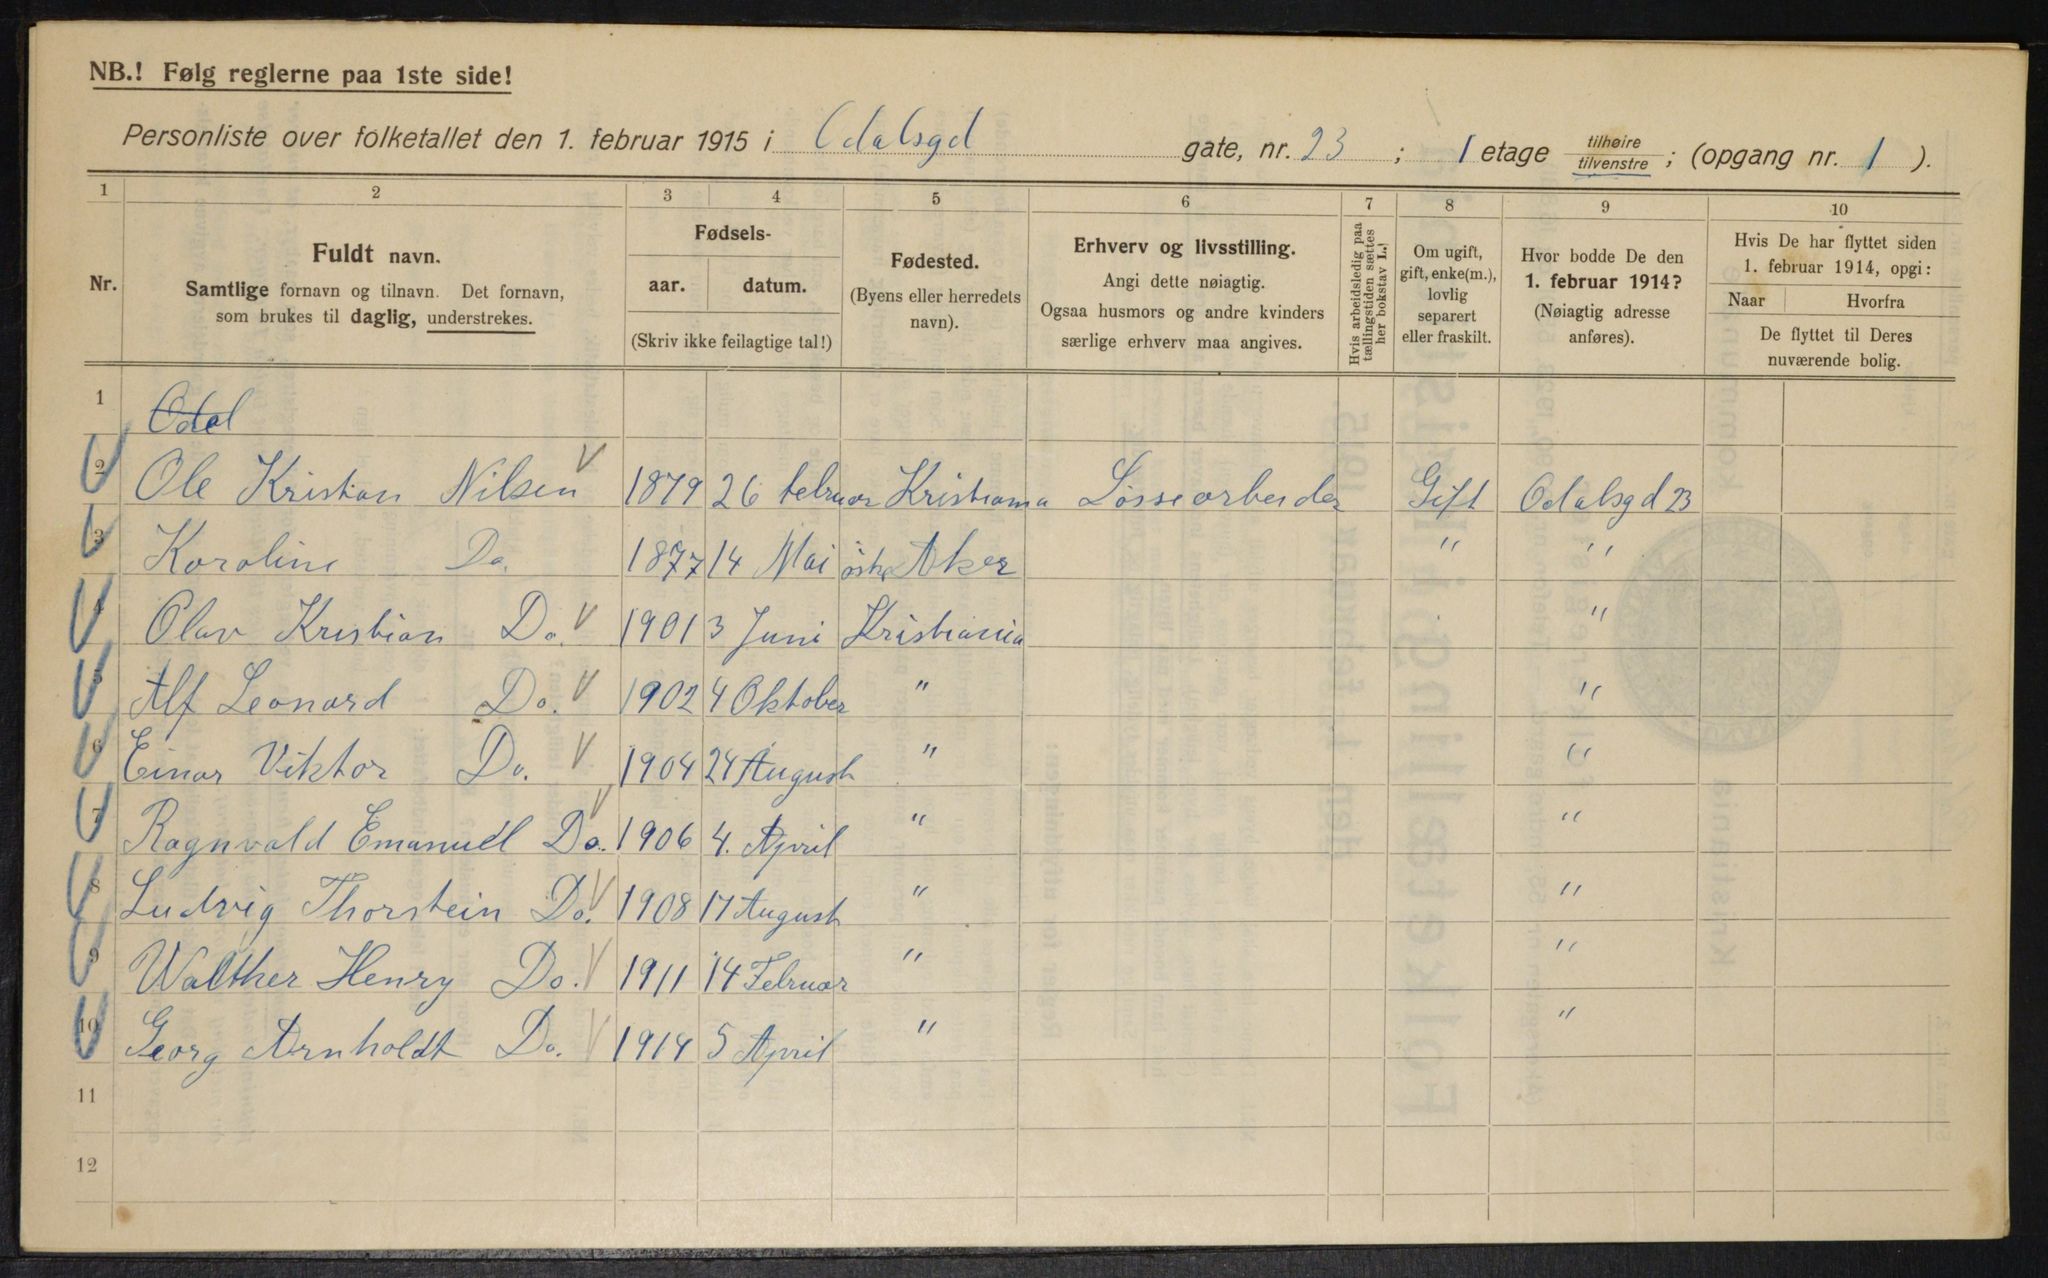 NB.! Følg reglerne paa 1ste side!
Personliste over folketallet den 1. februar 1915 i Odalsgd gate, nr. 23 ; 1 etage tilhøire tilvenstre ; (opgang nr. 1 ).
1 2 3 4 5 6 7 8 9 10
Nr.
Fuldt navn.
Samtlige fornavn og tilnavn. Det fornavn,
som brukes til daglig, understrekes.
Fødsels-
aar. datum.
(Skriv ikke feilagtige tal!)
Fødested.
(Byens eller herredets
navn).
Erhverv og livsstilling.
Angi dette nøiagtig.
Ogsaa husmors og andre kvinders
særlige erhverv maa angives.
Hvis arbeidsledig paa
tællingstiden sættes
her bokstav L.!
Om ugift,
gift, enke(m.),
lovlig
separert
eller fraskilt.
Hvor bodde De den
1. februar 1914?
(Nøiagtig adresse
anføres).
Hvis De har flyttet siden
1. februar 1914, opgi:
Naar Hvorfra
De flyttet til Deres
nuværende bolig.
1 Odal
2 Ole Kristian Nilsen 1879 26 februar Kristiania Løssearbeider Gift Odalsgd 23
3 Karoline Do. 1877 14 Mai østre Aker " "
4 Olav Kristian Do. 1901 3 Juni Kristiania "
5 Alf Leonard Do. 1902 4 Oktober " "
6 Einar Viktor Do. 1904 24 August " "
7 Ragnvald Emanuel Do. 1906 4. April " "
8 Ludvig Thorstein Do. 1908 17 August " "
9 Walther Henry Do. 1911 14 Februar " "
10 Georg Arnholdt Do. 1914 5 April " "
11
12